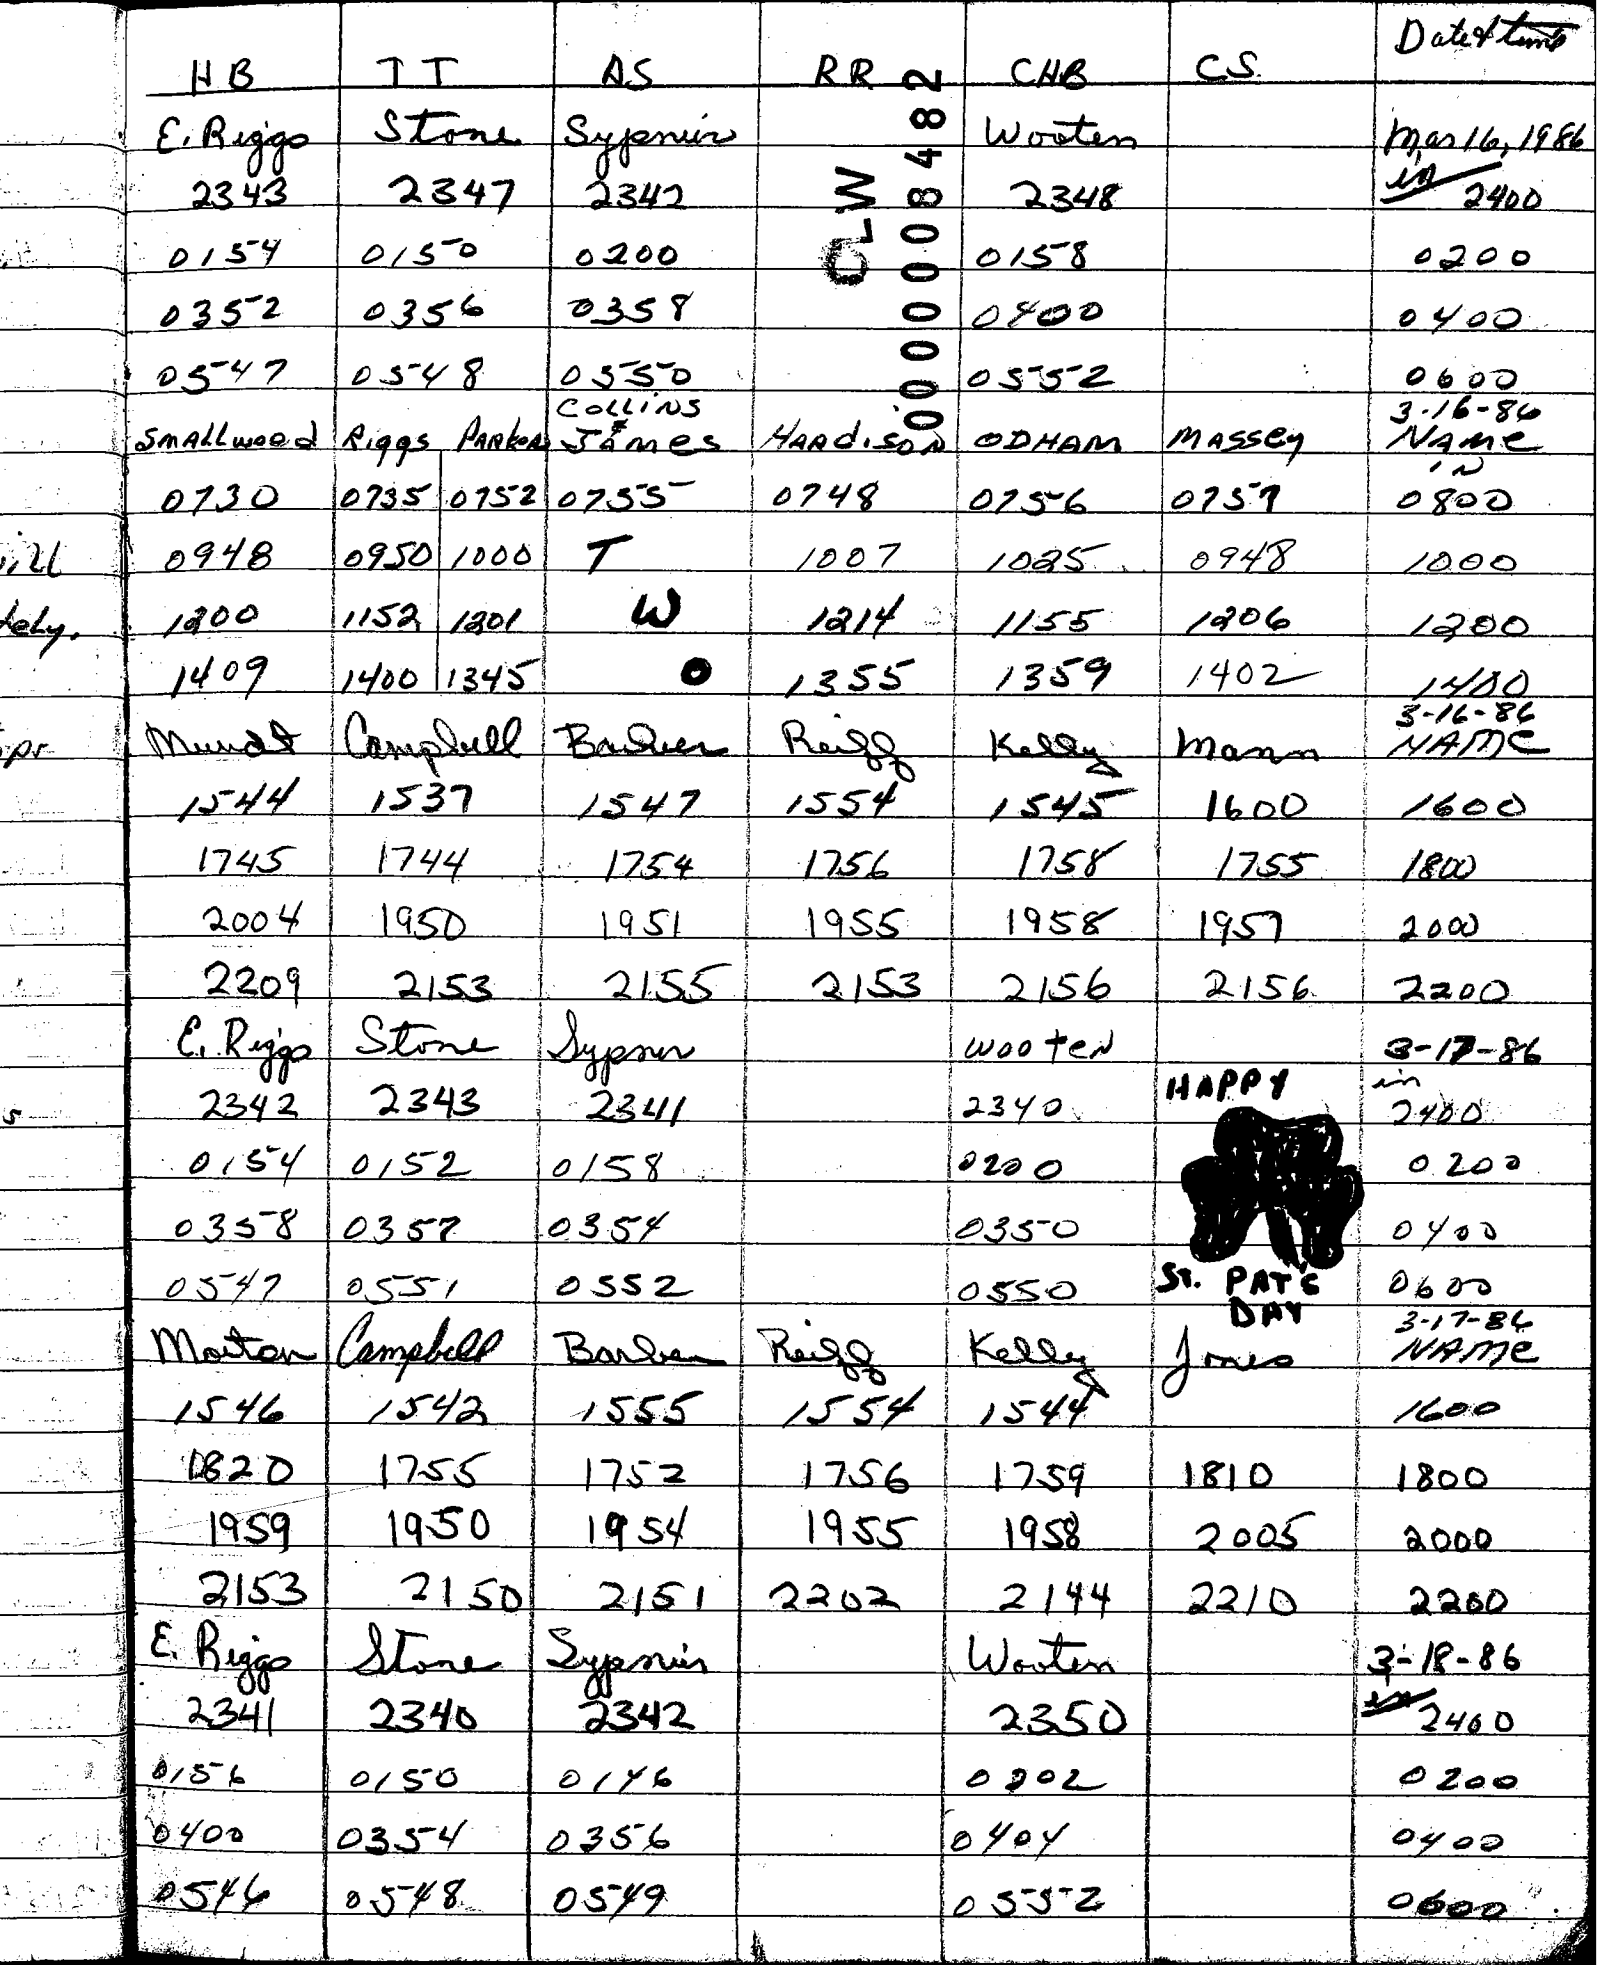 Date & time
HB TT AS RR CHB CS.
E. Riggs Stone Sypnier Wooten Mar 16, 1986
2343 2347 2342 2348 in 2400
0154 0150 0200 0158 0200
0352 0356 0358 0400 0400
0547 0548 0550 0552 0600
COLLINS 3-16-86
SMALLWOOD Riggs PARKER & JAMES HARDISON ODHAM MASSEY NAME
in
0730 0735 0752 0755 0748 0756 0757 0800
0948 0950 1000 T 1007 1025 0948 1000
1200 1152 1201 W 1214 1155 1206 1200
1409 1400 1345 O 1355 1359 1402 1400
3-16-86
Mundt Campbell Barber Reigg Kelly Mann NAME
1544 1537 1547 1554 1545 1600 1600
1745 1744 1754 1756 1758 1755 1800
2004 1950 1951 1955 1958 1957 2000
2209 2153 2155 2153 2156 2156 2200
E. Riggs Stone Sypnier Wooten 3-17-86
HAPPY in
2342 2343 2341 2340 2400
0154 0152 0158 0200 0200
0358 0357 0354 0350 0400
0547 0551 0552 0550 ST. PAT'S 0600
DAY 3-17-86
Morton Campbell Barber Reigg Kelly Jones NAME
1546 1542 1555 1554 1544 1600
1820 1755 1752 1756 1759 1810 1800
1959 1950 1954 1955 1958 2005 2000
2153 2150 2151 2202 2144 2210 2200
E. Riggs Stone Sypnier Wooten 3-18-86
2341 2340 2342 2350 in 2400
0156 0150 0146 0202 0200
0400 0354 0356 0404 0400
0546 0548 0549 0552 0600
CLW
0000008482